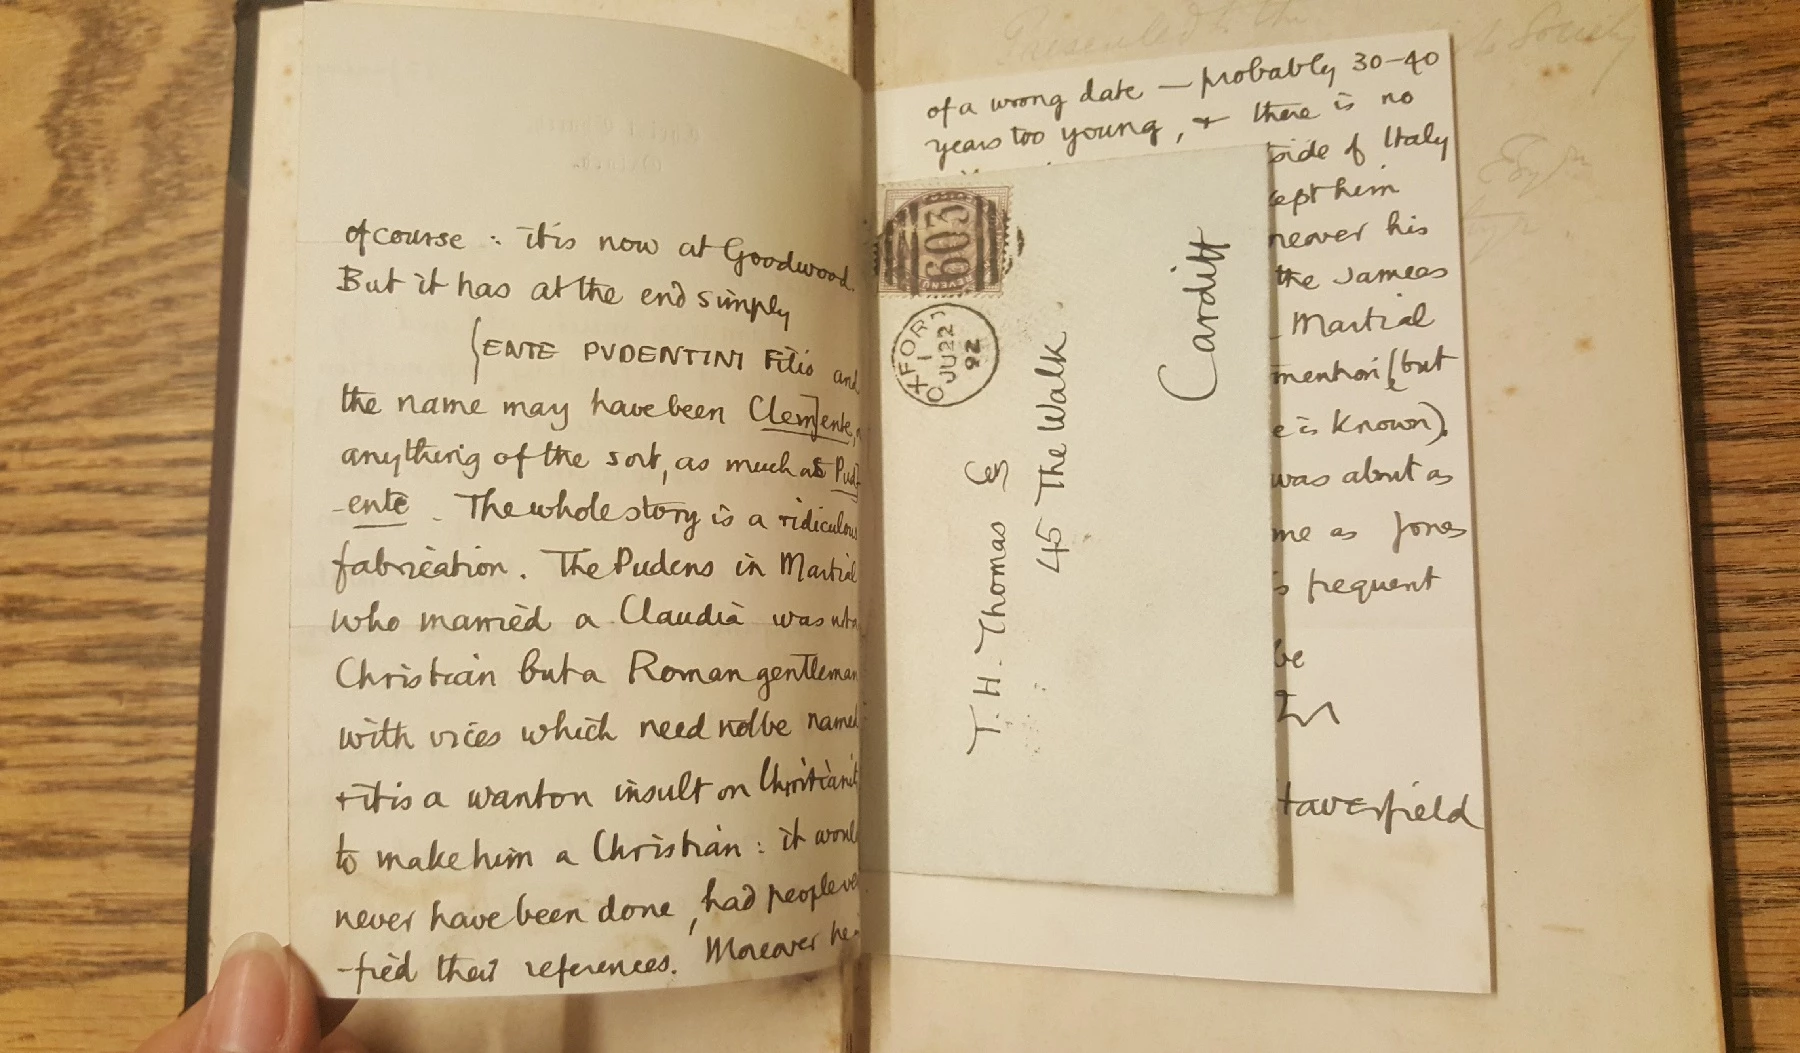 of course : it is now at Goodwood.
But it has at the end simply
{ENTE PVDENTINI Filio and
the name may have been Clem]ente,
anything of the sort, as much as Pud
-ente. The whole story is a ridiculous
fabrication. The Pudens in Martial
who married a Claudia was not a
Christian but a Roman gentleman
with vices which need not be named
+ it is a wanton insult on Christianit
to make him a Christian : it would
never have been done, had people ve
-fied their references. Moreover he
Presented to the
Society
of a wrong date — probably 30-40
years too young, + there is no
side of Italy
cept him
never his
the James
Martial
mention (but
e is known).
was about as
me as Jones
s frequent
be
Haverfield
603
OXFORD
1
JU 22
92
T. H. Thomas Esq
45 The Walk
Cardiff
Esqr